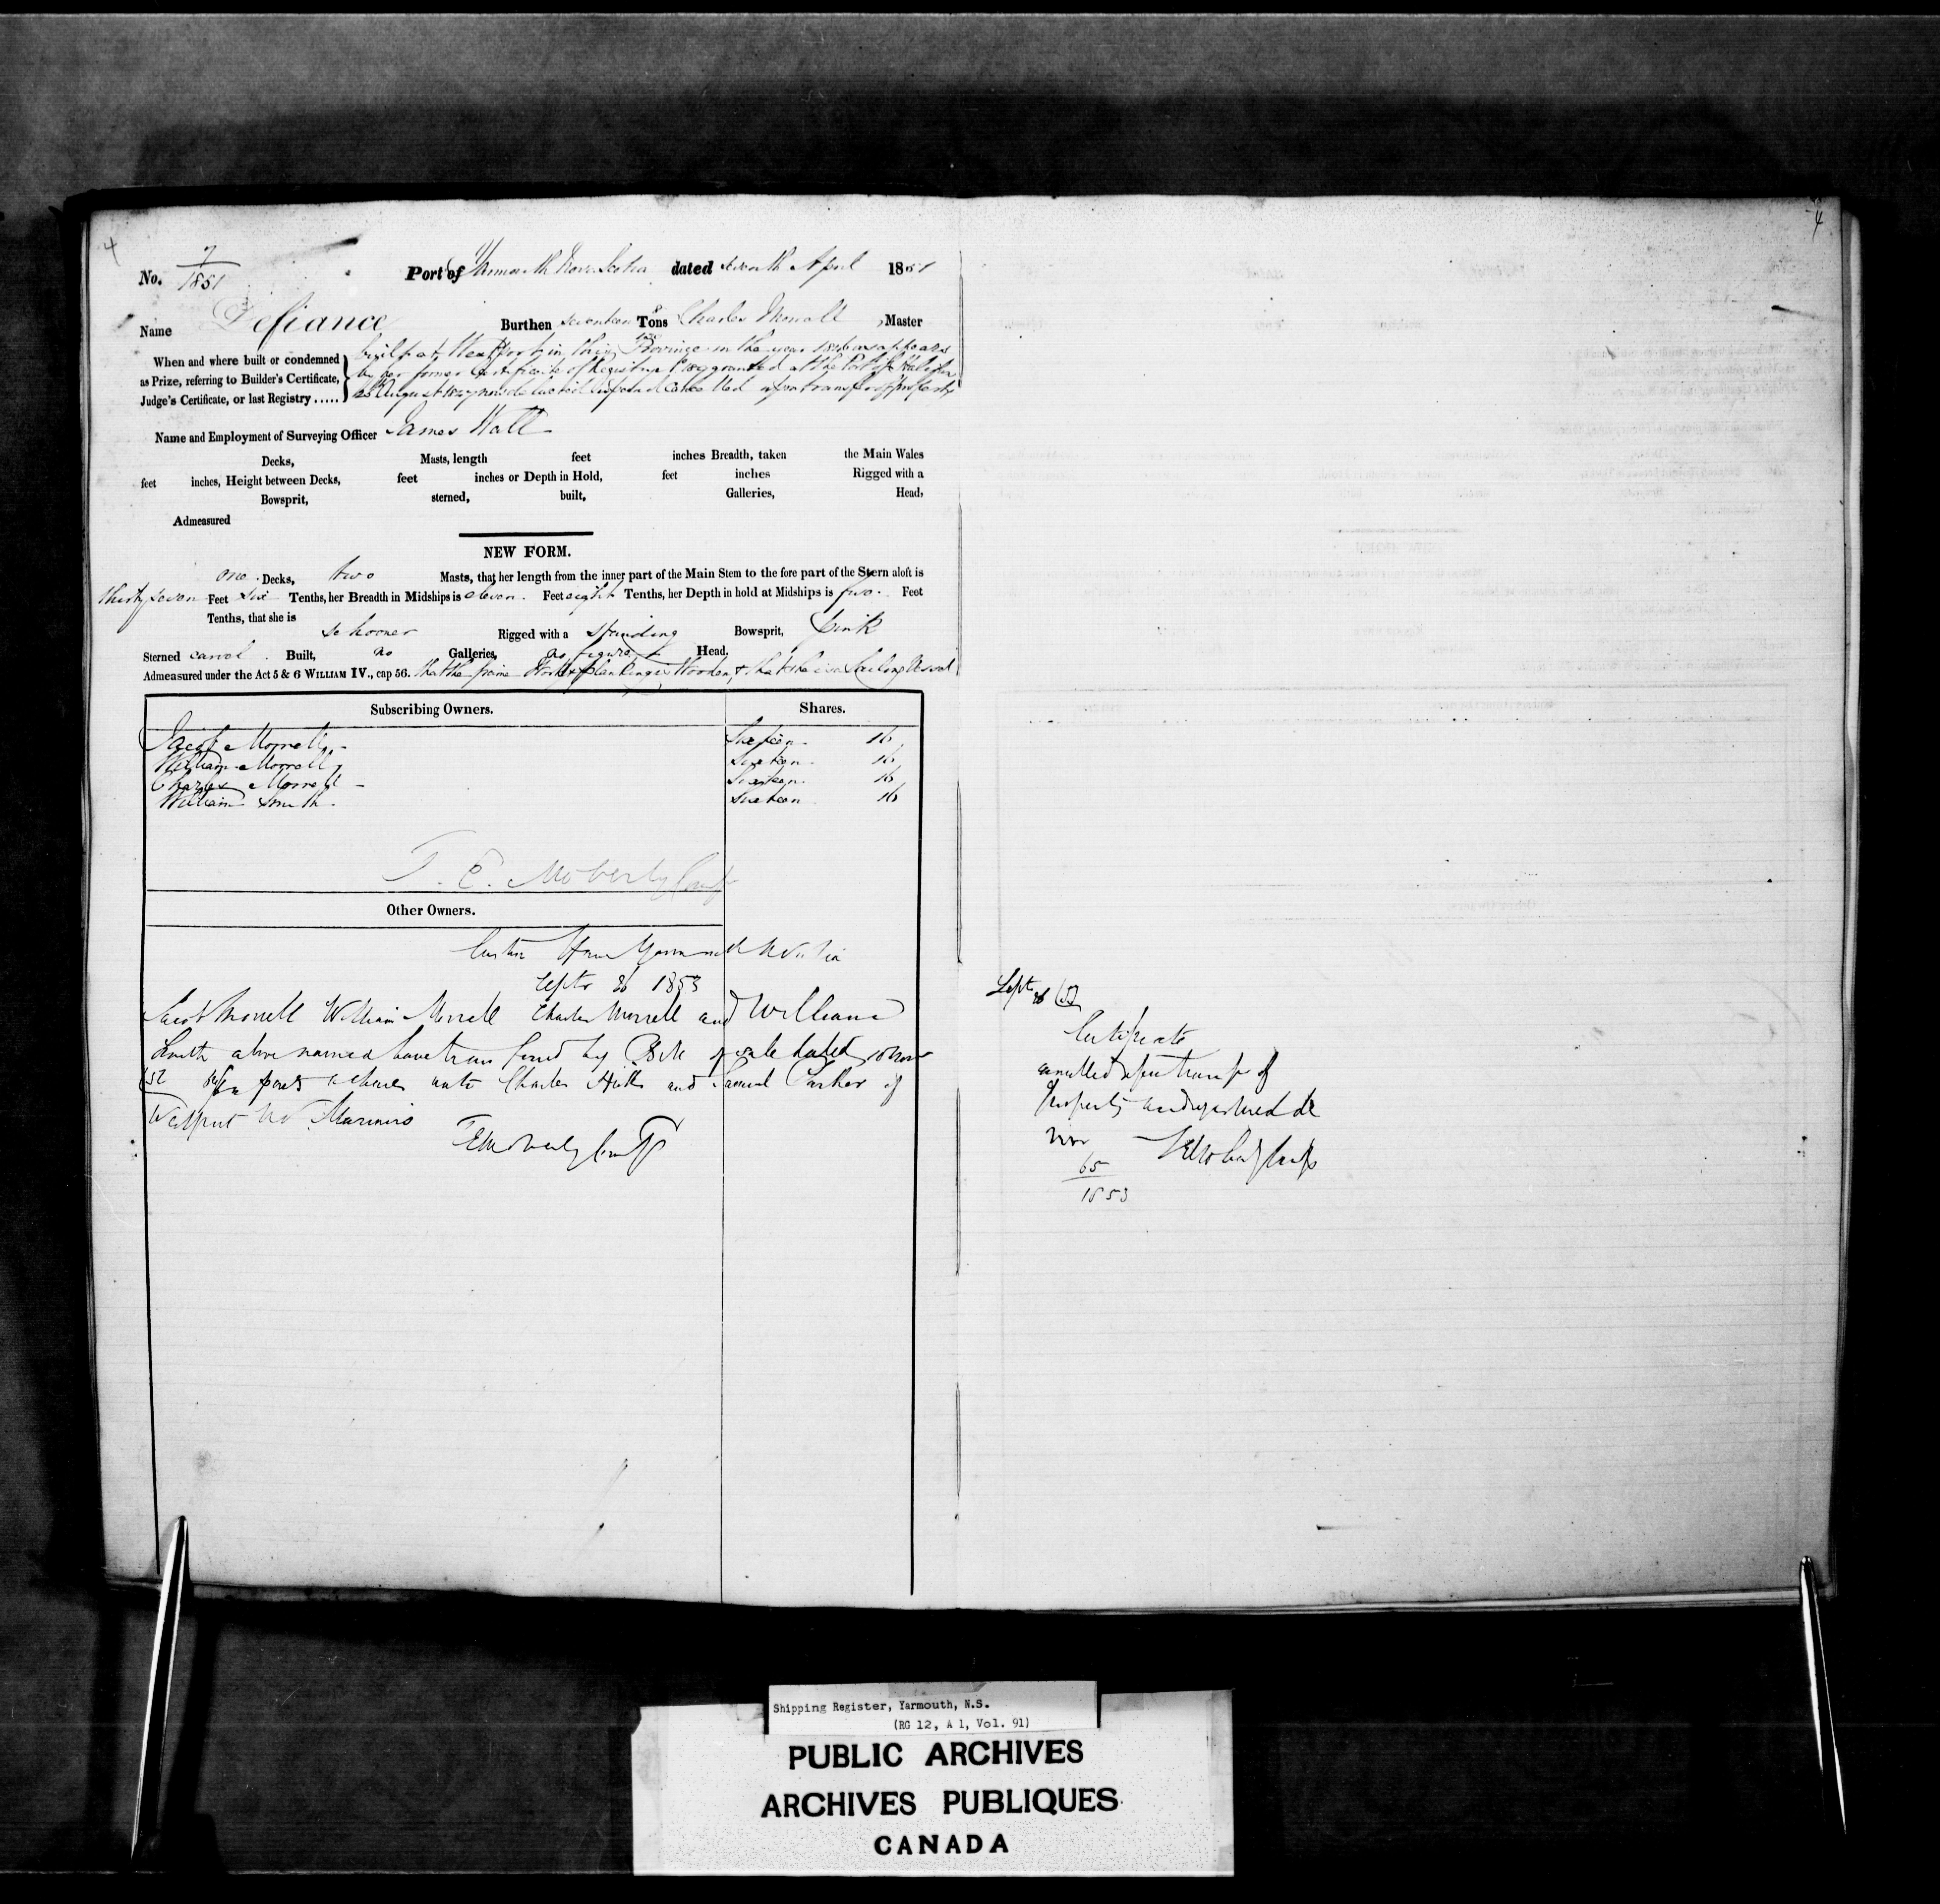 4
4
No. 7/1851 Port of Yarmouth Nova Scotia dated seventh April 1851
Name Defiance Burthen seventeen Tons Charles Morrell, Master
When and where built or condemned as Prize, referring to Builder's Certificate, Judge's Certificate, or last Registry .....
built at Westport in this Province in the year 1846 as appears
by her former Certificate of Registry granted at the Port of Halifax
August cancelled upon transfer of property
Name and Employment of Surveying Officer James Wall
Decks, Masts, length feet inches Breadth, taken the Main Wales
feet inches, Height between Decks, feet inches or Depth in Hold, feet inches Rigged with a
Bowsprit, sterned, built, Galleries, Head,
Admeasured
NEW FORM.
one Decks, two Masts, that her length from the inner part of the Main Stem to the fore part of the Stern aloft is
thirty seven Feet six Tenths, her Breadth in Midships is eleven Feet eight Tenths, her Depth in hold at Midships is five Feet
Tenths, that she is schooner Rigged with a standing Bowsprit, pink
Sterned carvel Built, no Galleries, no figure Head,
Admeasured under the Act 5 & 6 WILLIAM IV., cap 56. that the frame work & planking is Wooden, & that she is a Sailing Vessel
Subscribing Owners. Shares.
Jacob Morrell Sixteen 16
William Morrell Sixteen 16
Charles Morrell Sixteen 16
William Smith Sixteen 16
T. E. Moberly Compt
Other Owners.
Custom House Yarmouth N Scotia
Septr 26 1853
Jacob Morrell William Morrell Charles Morrell and William
Smith above named have transferred by Bill of sale dated 10 Nov
/52 shares unto Charles and Samuel of
Westport NS Mariners
TE Moberly Compt
Sept 26 /53
Certificate
cancelled upon transfer of
Property and registered de
novo
65
1853
TE Moberly Compt
Shipping Register, Yarmouth, N.S.
(RG 12, A 1, Vol. 91)
PUBLIC ARCHIVES
ARCHIVES PUBLIQUES
CANADA